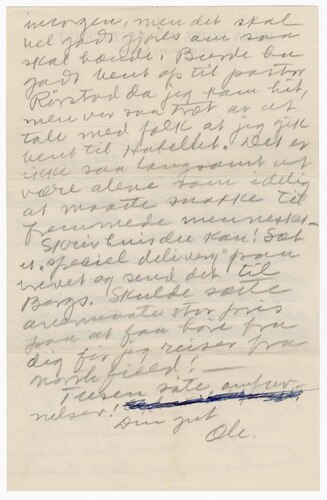 imorgen, men det skal
vel godt gjøres om saa
skal hænde. Burde ha
gaat bent op til pastor
Rörstad da jeg kom hit,
men var saa træt av at
tale med folk at jeg gik
bent til Hotellet. Det er
ikke saa langsomt at
være alene som idelig
at maatte snakke til
fremmede mennesker.
Skriv hvis du kan! Sæt
et "special delivery" paa
brevet og send det til
Bergs. Skulde sætte
overmaate stor pris
paa at faa høre fra
dig før jeg reiser fra
Northfield! —
Tusen søte
nelser!
Din gut
Ole.